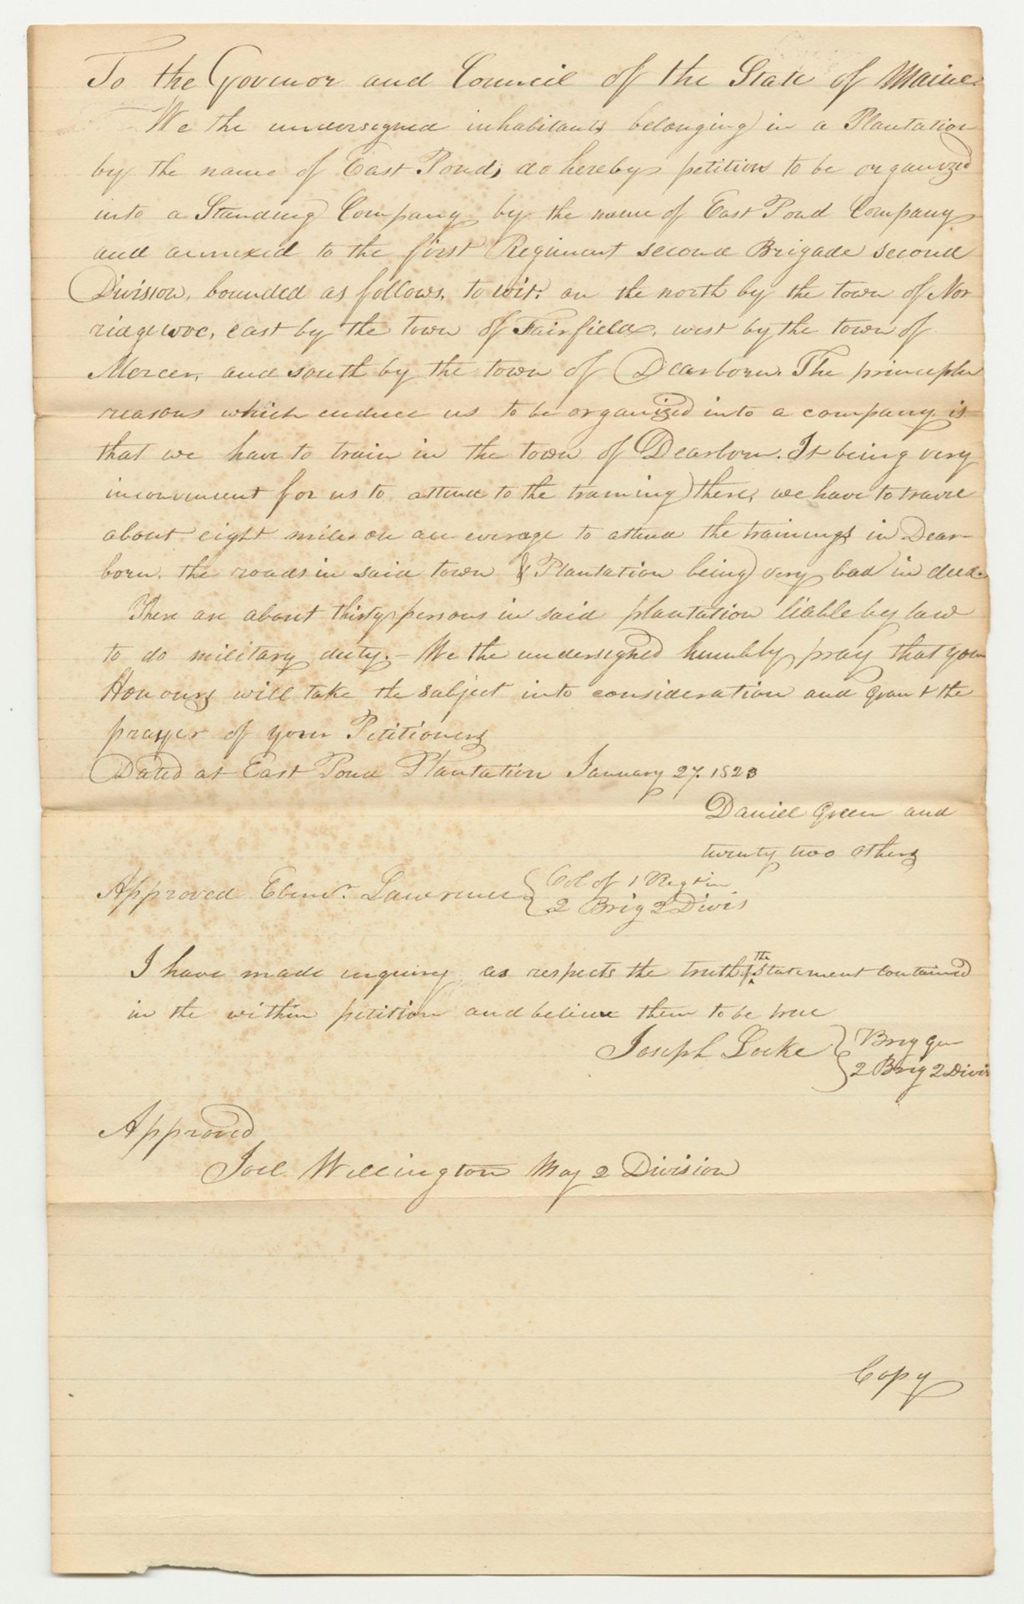 To the Govenor and Council of the State of Maine
We the undersigned inhabitants belonging in a Plantation
by the name of East Pond, do hereby petition to be organized
into a Standing Company by the name of East Pond Company
and annexed to the first Regiment second Brigade second
Division, bounded as follows, to wit: on the north by the town of Nor
ridgewoc, east by the town of Fairfield, west by the town of
Mercer, and south by the town of Dearborn. The principle
reasons which enduce us to be organized into a company is
that we have to train in the town of Dearborn. It being very
inconvenient for us to attend to the training there, we have to travel
about eight miles on an everage to attend the trainings in Dear-
born. the roads in said town & Plantation being very bad in deed.
There are about thirty persons in said plantation liable by law
to do military duty. - We the undersigned humbly pray that your
Honours will take the subject into consideration and grant the
prayer of your Petitioners
Dated at East Pond Plantation January 27. 1823
Daniel Green and
twenty two others
Approved Ebenr. Lawrence { Col of 1 Regtm
2 Brig 2 Divis
I have made inquiry as respects the truth of the statement contained
in the within petition and believe them to be true
Joseph Locke } Brig Gen
2 Brig 2 Divis
Approved
Joel Wellington Maj 2 Division
Copy